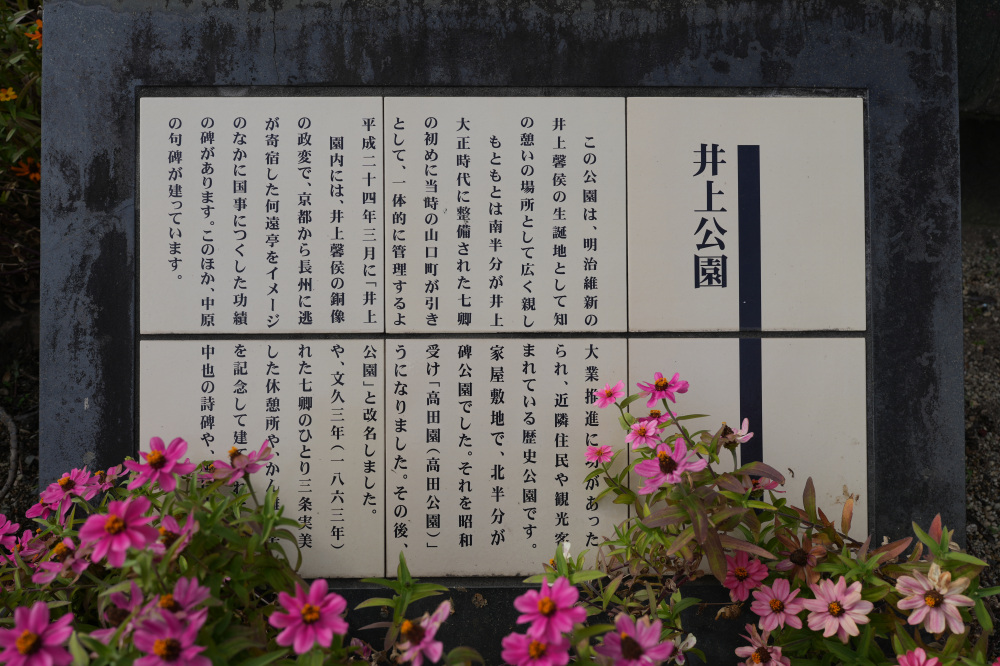 井上公園
この公園は、明治維新の大業推進に功があった
井上馨侯の生誕地として知られ、近隣住民や観光客
の憩いの場所として広く親しまれている歴史公園です。
もともとは南半分が井上家屋敷地で、北半分が
大正時代に整備された七卿碑公園でした。それを昭和
の初めに当時の山口町が引き受け「高田園(高田公園)」
として、一体的に管理するようになりました。その後、
平成二十四年三月に「井上公園」と改名しました。
園内には、井上馨侯の銅像や、文久三年(一八六三年)
の政変で、京都から長州に逃れた七卿のひとり三条実美
が寄宿した何遠亭をイメージした休憩所や、かん
のなかに国事につくした功績を記念して建て
の碑があります。このほか、中原中也の詩碑や、
の句碑が建っています。